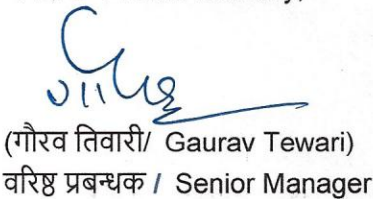 (गौरव तिवारी/ Gaurav Tewari)
वरिष्ठ प्रबन्धक / Senior Manager